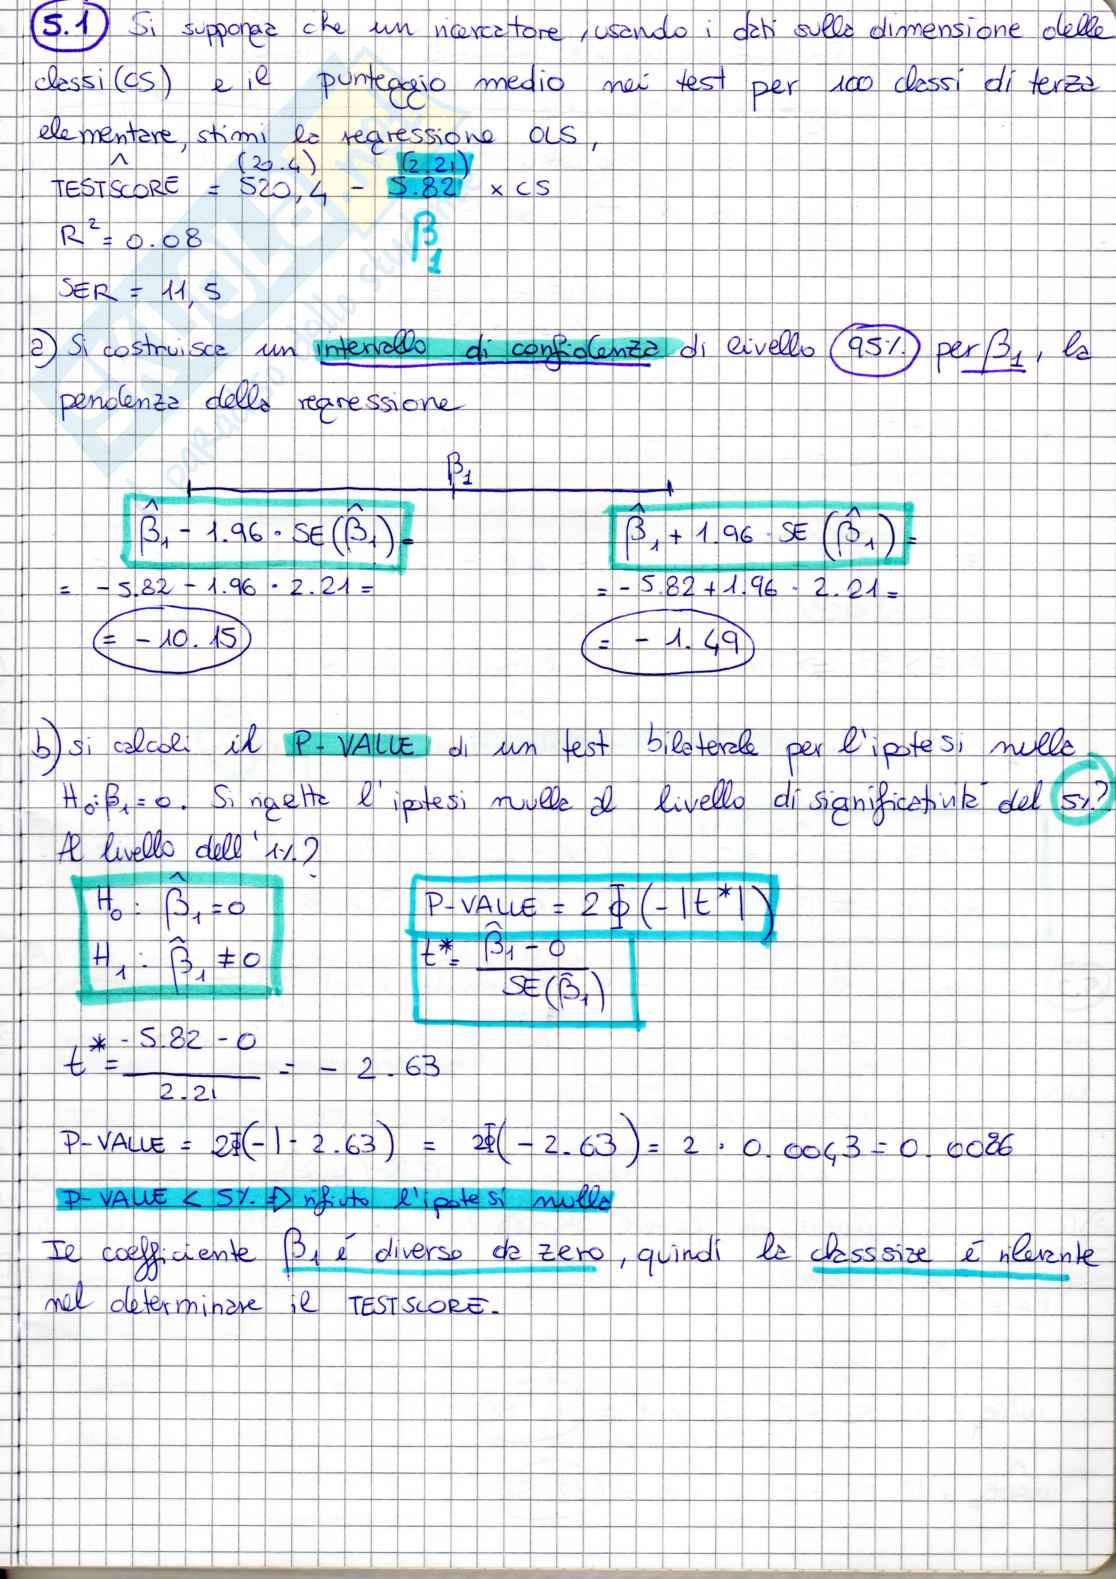 5.1 Si supponga che un ricercatore, usando i dati sulla dimensione delle
classi (CS) e il punteggio medio nei test per 100 classi di terza
elementare, stimi la regressione OLS,
(20.4) (2.21)
^TESTSCORE = 520,4 - 5.82 × CS
R² = 0.08 β₁
SER = 11,5
a) Si costruisca un intervallo di confidenza di livello 95% per β₁, la
pendenza della regressione
β₁
β̂₁ - 1.96 · SE(β̂₁) = β̂₁ + 1.96 · SE(β̂₁) =
= - 5.82 - 1.96 · 2.21 = = - 5.82 + 1.96 · 2.21 =
= - 10.15 = - 1.49
b) si calcoli il P-VALUE di un test bilaterale per l'ipotesi nulla
H₀: β₁ = 0. Si rigetta l'ipotesi nulla al livello di significatività del 5%?
Al livello dell'1%?
H₀ : β̂₁ = 0 P-VALUE = 2Φ(-|t*|)
H₁ : β̂₁ ≠ 0 t* = β̂₁ - 0
SE(β̂₁)
t* = - 5.82 - 0 = - 2.63
2.21
P-VALUE = 2Φ(-|- 2.63) = 2Φ(- 2.63) = 2 · 0.0043 = 0.0086
P-VALUE < 5% ⇒ rifiuto l'ipotesi nulla
Il coefficiente β₁ é diverso da zero, quindi la classsize é rilevante
nel determinare il TESTSCORE.